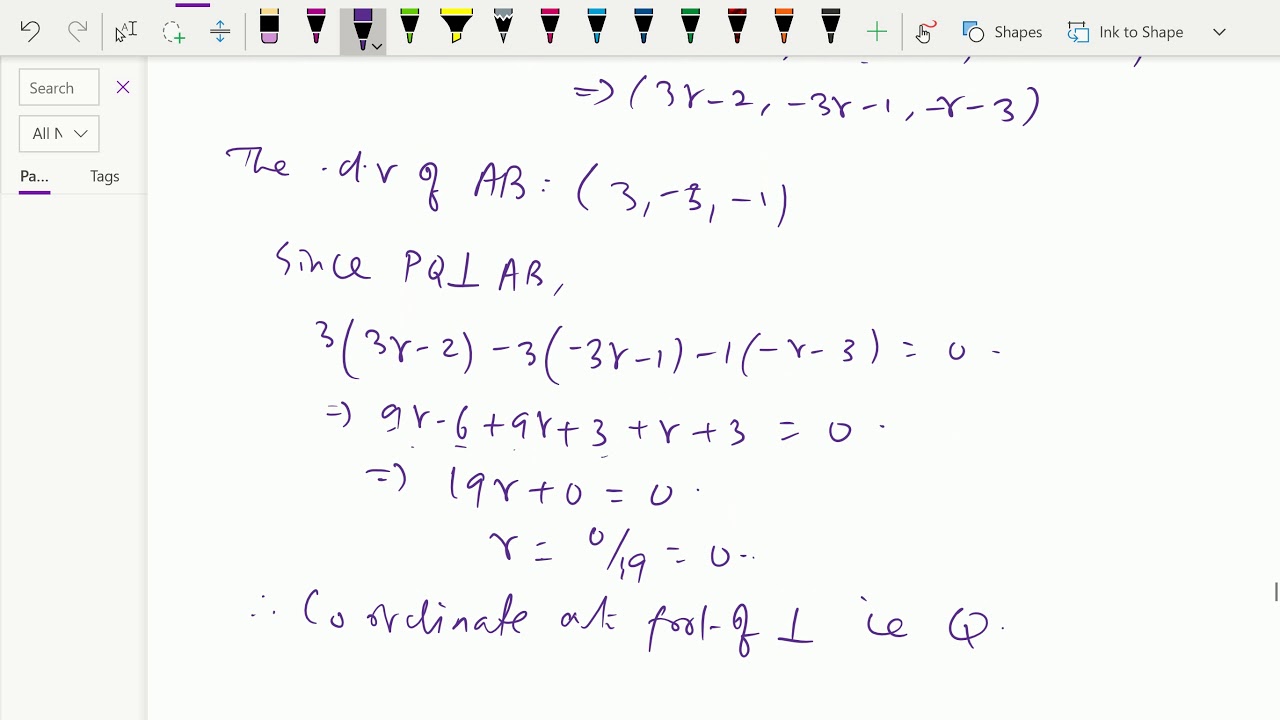 Shapes
Ink to Shape
Search
All N
Pa...
Tags
=> (3r-2, -3r-1, -r-3)
The .d.r of AB: (3, -3, -1)
Since PQ⊥ AB,
3(3r-2) -3(-3r-1) -1(-r-3) = 0.
=> 9r-6+9r+3+r+3 = 0.
=> 19r+0 = 0.
r = 0/19 = 0..
∴ Coordinate at foot of ⊥ ie Q.